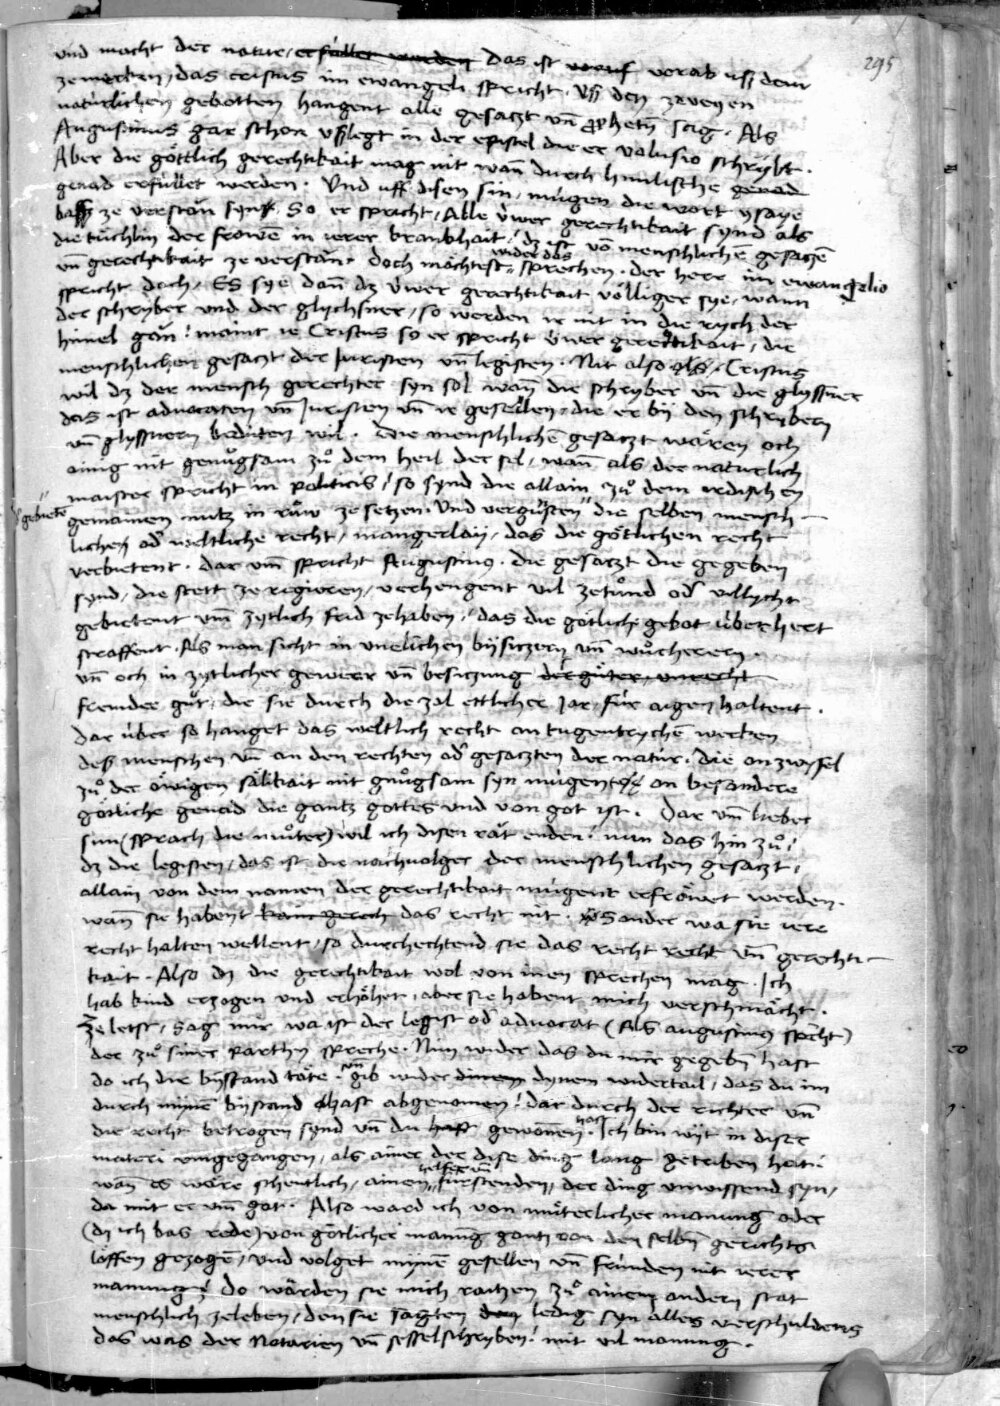 295
vnd macht der natur, erfüllet werden Das ist voruſ vorab uſſ dem
ze merken, das cristus im ewangeli spricht. Uſſ den zweyen
natürlichen gebotten hangent alle gesatzt vn̄ prophetē sag. Als
Augustinus gar schon uſſlegt in der epistel die er volusio schrybt.
Aber die göttlich gerechtikait mag nit wan̄ durch himlische genad
genad erfüllet werden. Und uff disen sin, mügen die wort ysaye
baſſ ze verstän syn. So er spricht, Alle üwer gerechtikait synd als
die tüchlin der frowē in irer krankhait, dz ist vō menschlichē gesatzē
vn̄ gerechtikait ze verstän. doch möchtest wider das sprechen. der herr im ewangelio
spricht doch, Es sye dan̄ dz üwer gerechtikait völliger sye, wann
der schryber vnd der glychsner, so werden ir nit in die rych der
himel gän. maint ie Cristus so er spricht üwer gerechtikait, die
menschlichen gesatzt der Juristen vn̄ legisten. Nit also, Cristus
wil dz der mensch gerechter syn sol wan̄ die schryber vn̄ die glyssner
das ist advocaten vn̄ Juristen vn̄ ir gesellen, die er by den schrybern
vn̄ glyssnern bedüten wil. Die menschlichē gesatzt wären och
ainig nit genůgsam zů dem heil der sel, wan̄ als der naturlich
maister spricht in politicis, so synd die allain zů dem irdischen
gemainen nutz in růw ze setzen. Und vergüsten die selben mensch-
gebiete
lichen od' weltliche recht, mangerlay, das die götlichen recht
verbietent. dar vm̄ spricht Augustinus. die gesatzt die gegeben
synd, die stett ze regieren, verhengent vil zetůnd od' villycht
gebietent vm̄ zytlich frid ze haben, das die götlich gebot überhert
straffent. Als man sicht in vnelichen bysitzern vn̄ wůcherern.
vn̄ och in zytlicher gewerr vn̄ besitzung der güter, vnrecht
fremder gůt, die sie durch die zal ettlicher Jar, für aigen haltent.
Dar über so hanget das weltlich recht an tugentrychē werken
deß menschen vn̄ an den rechten od' gesatzten der natur. die on zwyfel
zů der öwigen sälikait nit gnůgsam syn mügent on besondere
götliche genad die gantz gottes vnd von got ist. Dar vm̄ lieber
sun (sprach die můter) wil ich disen rät enden. nun das hin zů,
dz die legisten, das ist die nachvolger der menschlichen gesatzt,
allain von dem namen der gerechtikait mügent erfröwet werden.
wan̄ sie habent kain gerech das recht nit. Besonder wa sie iere
recht halten wellent, so durchechtend sie das recht recht vn̄ gerechti-
kait. Also dz die gerechtikait wol von inen sprechen mag. Ich
hab kind erzogen und erhöhet, aber sie habent mich verschmächt.
Ze letst, Sag mir wa ist der legist od' advocat (Als augustinus spricht)
der zů siner parthy spreche. Nim wider das du mir gegebē hast
do ich dir bystand täte. vn̄ gib wider dinem dynem widertail, das du im
durch mynē bystand hast abgenomen. dar durch der richter vn̄
die recht betrogen synd vn̄ du hast gewonnen hast. Ich bin wyt in diser
materi vmgegangen, als ainer der dise ding lang getriben hett.
wan es wäre schentlich, ainen helfer vn̄ fürstenden, der ding vnwissend syn,
da mit er vm̄ got. Also ward ich von müterlicher manung oder
(dz ich bas rede) von götlicher manūg gantz von den selbē gerichtz
löffen gezogē, Und volget mynē gesellen vn̄ fründen nit irer
manung. do wärden sie mich raitzen zů ainem andern stat
menschlich zeleben, den sie sagten den ledig syn alles verschuldens
das was der Notarien vn̄ sesselschryben. mit vil manung.